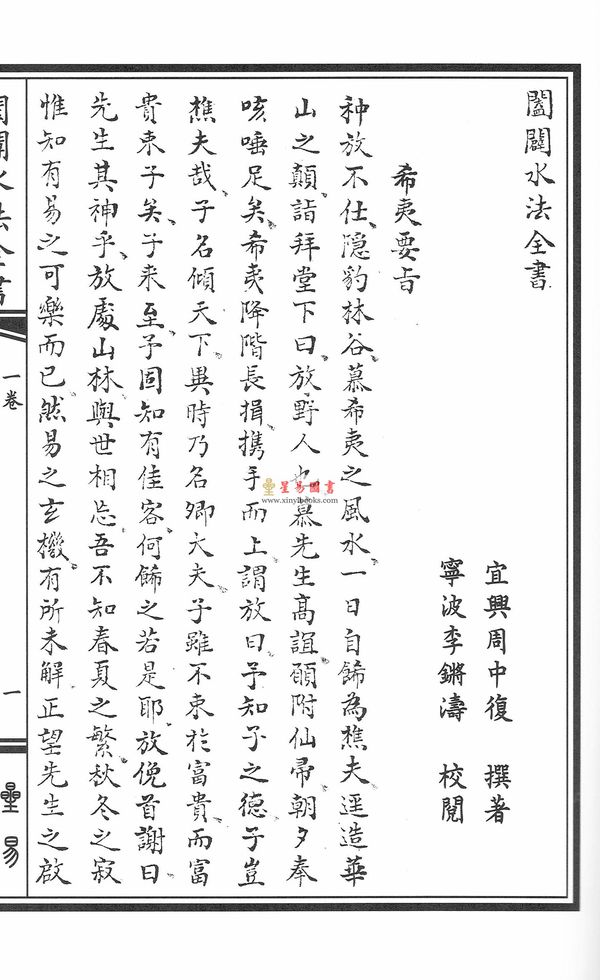 闔闢水法全書
宜興周中復 撰著
寧波李鏘濤 校閱
希夷要旨
种放不仕、隱豹林谷、慕希夷之風水、一日自飾為樵夫、逕造華
山之顛、詣拜堂下曰、放野人也、慕先生高誼、願附仙帚、朝夕奉
咳唾足矣、希夷降階長揖、携手而上、謂放曰、予知子之德、子豈
樵夫哉、子名傾天下、異時乃名卿大夫、子雖不束於富貴、而富
貴束子矣、子來至、予固知有佳客、何飾之若是耶、放俛首謝曰
先生其神乎、放處山林、與世相忘、吾不知春夏之繁、秋冬之寂
惟知有易之可樂而已、然易之玄機、有所未解、正望先生之啟
闔闢水法全書
一卷
一
星易
星易圖書
www.xinyibooks.com